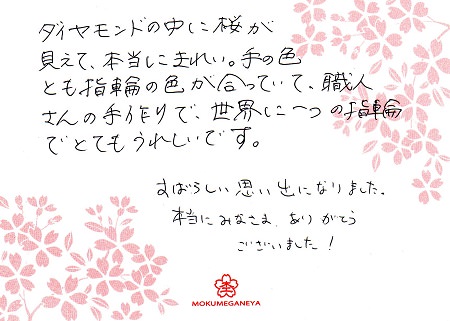 ダイヤモンドの中に桜が
見えて、本当にきれい。手の色
とも指輪の色が合っていて、職人
さんの手作りで、世界に一つの指輪
でとてもうれしいです。
すばらしい思い出になりました。
本当にみなさま ありがとう
ございました！
杢
MOKUMEGANEYA